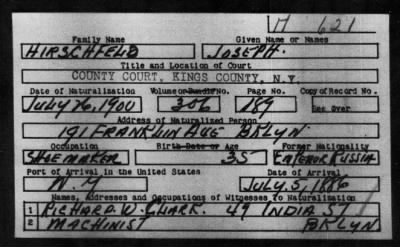 H 621
Family Name Given Name or Names
HIRSCHFELD JOSEPH.
Title and Location of Court
COUNTY COURT, KINGS COUNTY, N.Y.
Date of Naturalization Volume or Bundle No. Page No. Copy of Record No.
JULY 26, 1900 306 189 See Over
Address of Naturalized Person
191 FRANKLIN AVE BKLYN
Occupation Birth Date or Age Former Nationality
SHOEMAKER 35 EMPEROR RUSSIA
Port of Arrival in the United States Date of Arrival
N.Y JULY 5, 1886
Names, Addresses and Occupations of Witnesses To Naturalization
1 RICHARD. W. CLARK. 49 INDIA ST
2 MACHINIST BKLYN